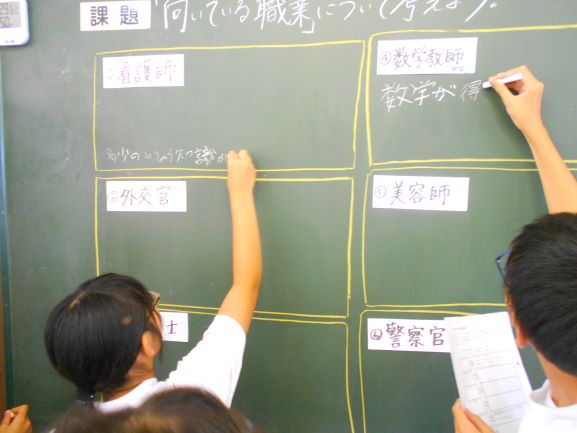 課題「向いている職業」について考えよう。
①看護師
多少のいりょう知識が
②外交官
士
④数学教師
数学が得
⑤美容師
⑥警察官